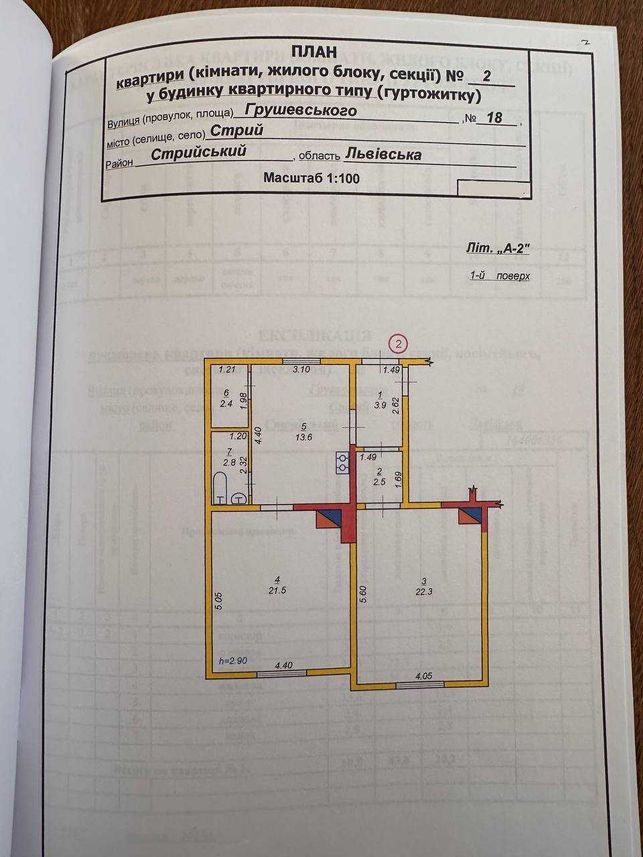 2
ПЛАН
квартири (кімнати, жилого блоку, секції) № 2
у будинку квартирного типу (гуртожитку)
Вулиця (провулок, площа) Грушевського ,№ 18 ,
місто (селище, село) Стрий
Район Стрийський , область Львівська
Масштаб 1:100
Літ. „А-2"
1-й поверх
2
1.21
3.10
1.49
6
2.4
1.98
1
3.9
2.62
5
13.6
4.40
1.20
7
2.8
2.32
1.49
2
2.5
1.69
4
21.5
5.05
3
22.3
5.60
h=2.90
4.40
4.05